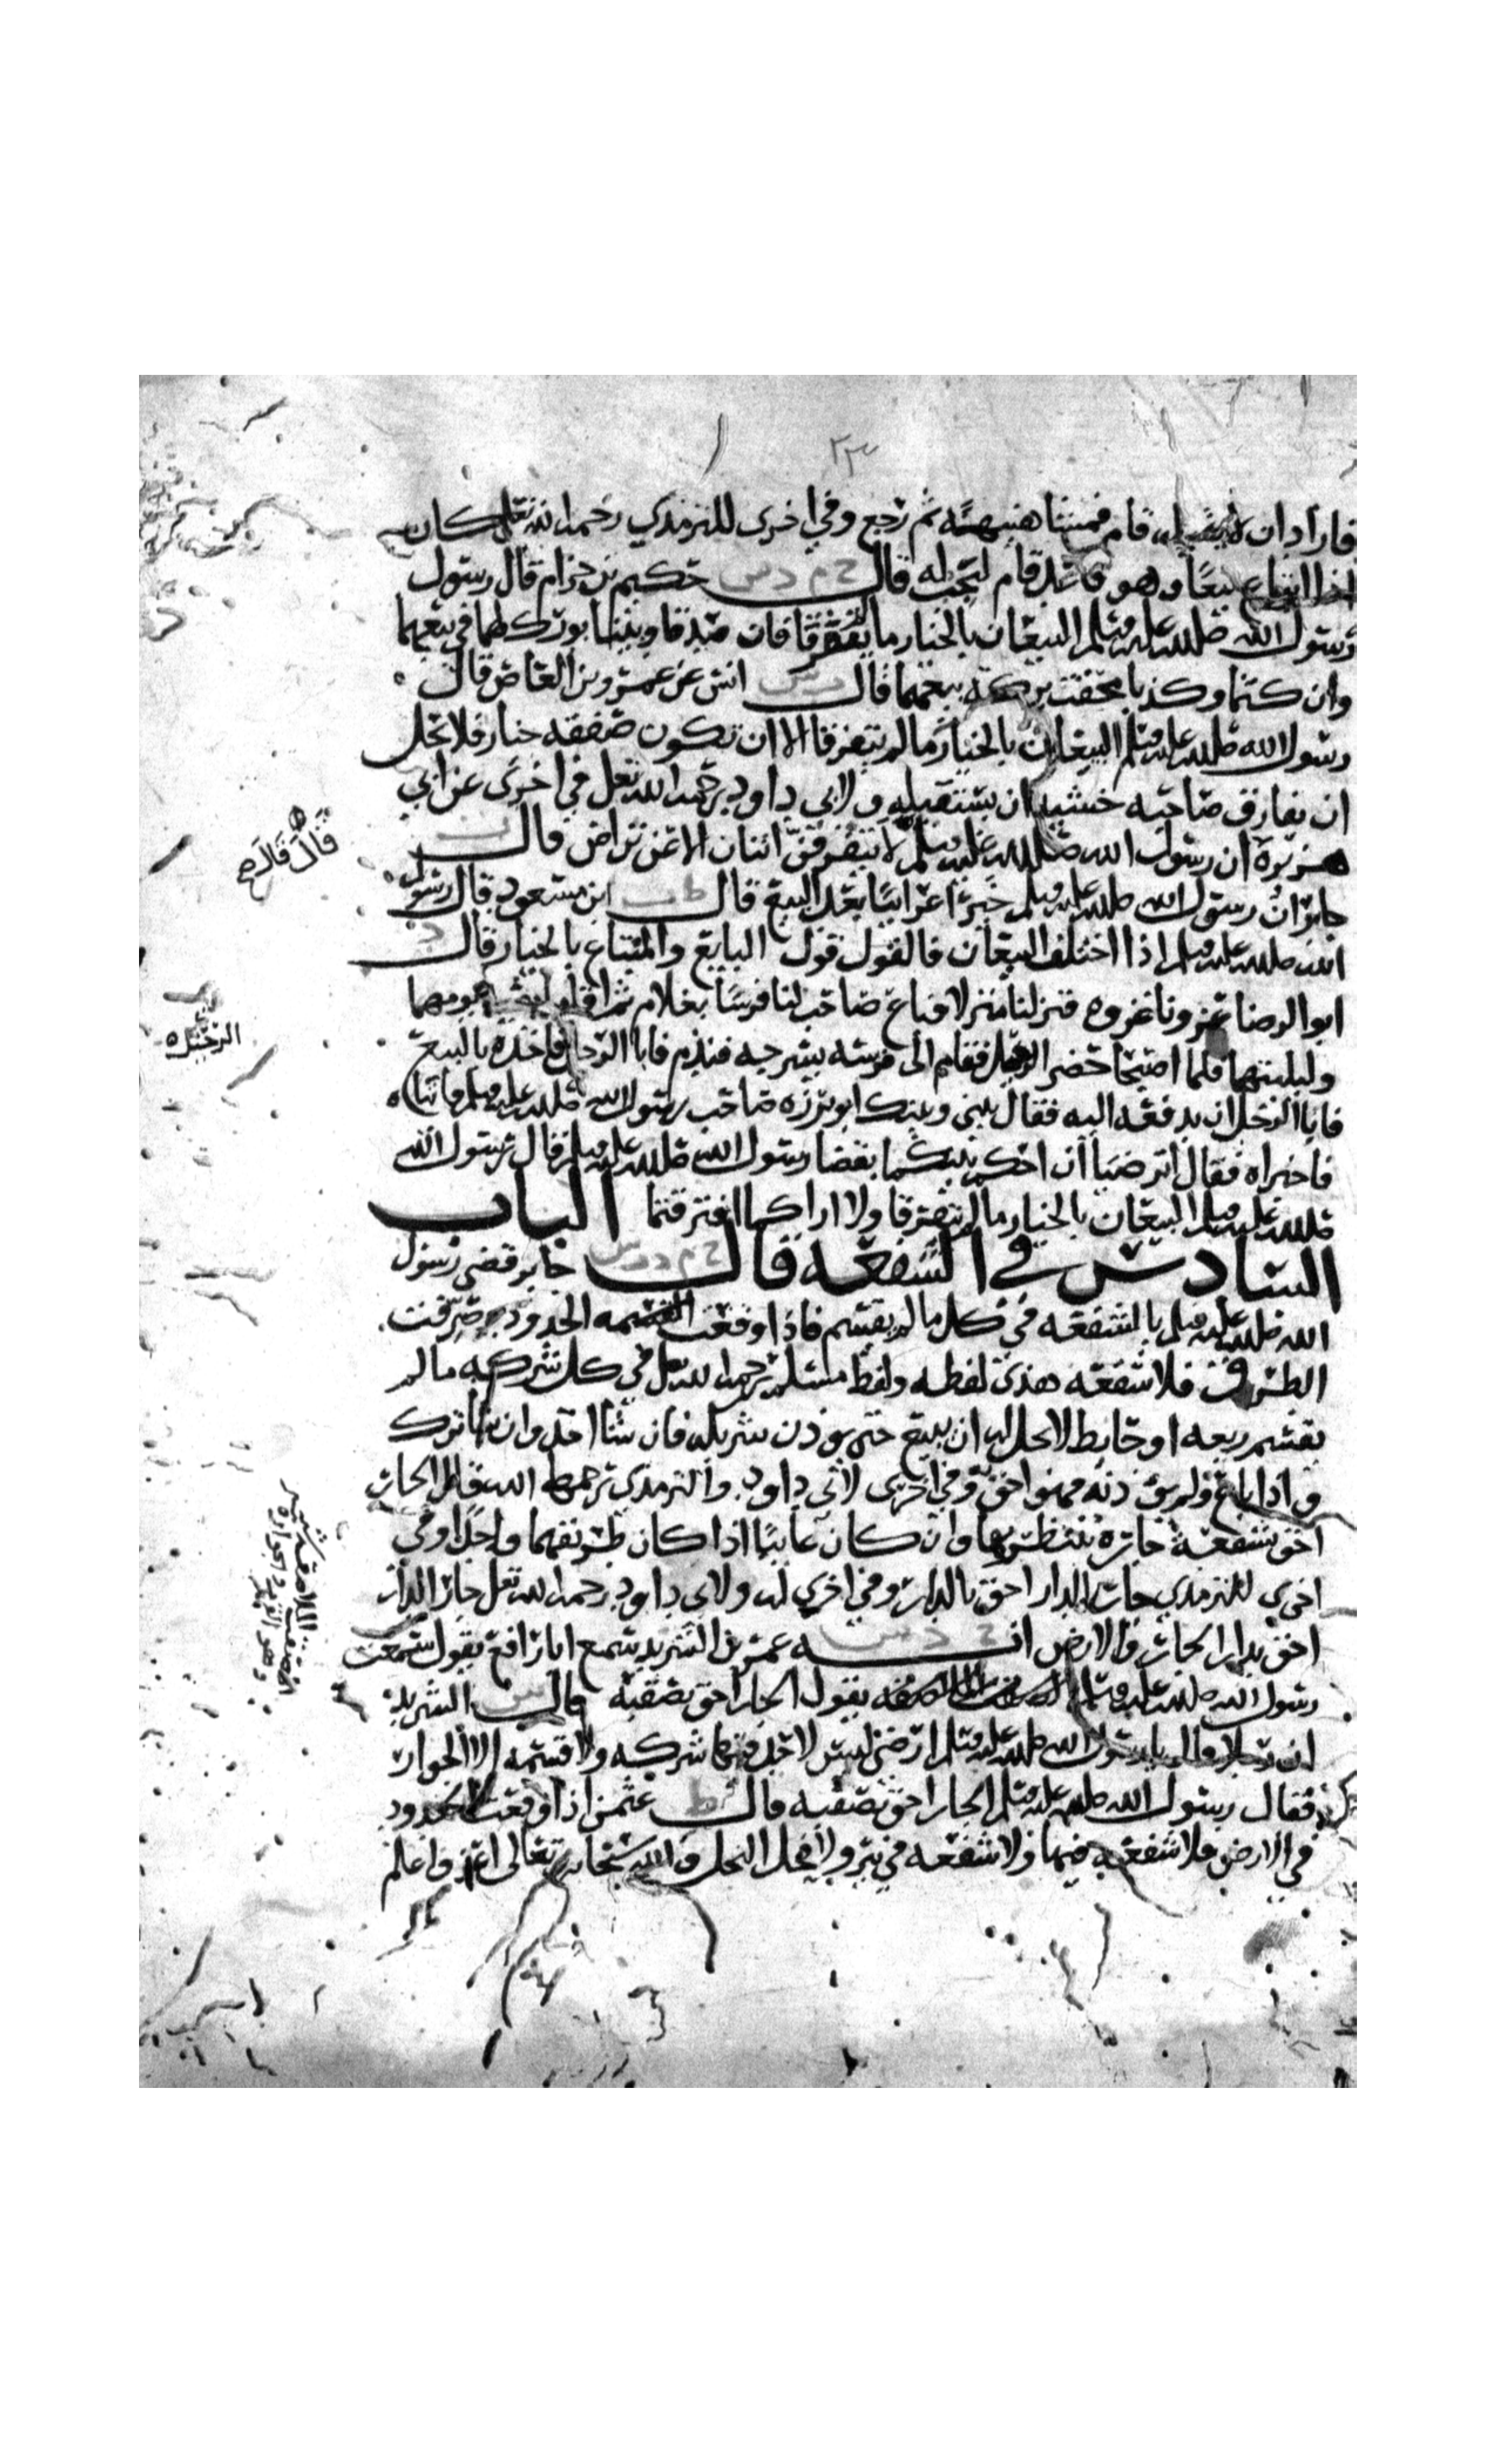 ٢٣
فاراد ان لا يقيله قام فمشا هنيهة ثم رجع وفي اخرى للترمذي رحمه الله تعلى كان
اذا ابتاع بيعًا وهو قاعد قام ليجب له قال خ م د س حكيم بن حزام قال رسول
رسول الله صلى الله عليه وسلم البيعان بالخيار ما لم يتفرقا فان صدقا وبينا بورك لهما في بيعهما
وان كتما وكذبا محقت بركة بيعهما قال د س انس عن عمرو بن العاص قال
رسول الله صلى الله عليه وسلم البيعان بالخيار ما لم يتفرقا الا ان تكون صفقه خيار فلا تحل
ان يفارق صاحبه خشية ان يستقيله ولابي داود رحمه الله تعلى في اخرى عن ابي
هريرة ان رسول الله صلى الله عليه وسلم لا يتفرقن اثنان الا عن تراض قال ت
جابر ان رسول الله صلى الله عليه وسلم خير اعرابيًا بعد البيع قال ط ت ابن مسعود قال رسول
الله صلى الله عليه وسلم اذا اختلف البيعان فالقول قول البايع والمبتاع بالخيار قال د
ابو الوضا غزونا غزوه فنزلنا منزلا فباع صاحب لنا فرسًا بغلام ثم اقاما بقية يومهما
وليلتهما فلما اصبحا حضر الرحيل فقام الى فرسه يسرجه فندم فاتا الرجل فاخذه بالبيع
فابا الرجل ان يدفعه اليه فقال بيني وبينك ابو برزه صاحب رسول الله صلى الله عليه وسلم فاتياه
فاخبراه فقال اترضيا ان احكم بينكما بقضا رسول الله صلى الله عليه وسلم قال رسول الله
صلى الله عليه وسلم البيعان بالخيار ما لم يتفرقا ولا اراكما افترقتما الباب
السادس في الشفعه قال خ م د ت س جابر قضى رسول
الله صلى الله عليه وسلم بالشفعه في كل ما لم يقسم فاذا وقعت الحدود وصرفت
الطرق فلا شفعه هذى لفظه ولفظ مسلم رحمه الله تعلى في كل شركه ما لم
يقسم ربعه او حايط لا يحل له ان يبيع حتى يوذن شريكه فان شا اخذ وان شا ترك
واذا باع ولم يوذنه فهو احق وفي اخرى لابي داود والترمذي رحمهما الله قال الجار
احق بشفعة جاره ينتظر بها وان كان غايبًا اذا كان طريقهما واحدًا وفي
اخرى للترمذي جار الدار احق بالدار وفي اخرى له ولابي داود رحمه الله تعلى جار الدار
احق بدار الجار والارض انه خ د س عمرو بن الشريد سمع ابا رافع يقول سمعت
رسول الله صلى الله عليه وسلم يقول الجار احق بصقبه قال س الشريد
ان رجلا قال يا رسول الله صلى الله عليه وسلم ارضي ليس لاحد فيها شركه ولا قسمه الا الجوار
فقال رسول الله صلى الله عليه وسلم الجار احق بصقبه قال ط عثمن اذا وقعت الحدود
في الارض فلا شفعه فيها ولا شفعه في بير ولا فحل النخل والله سبحانه وتعالى اعز واعلم